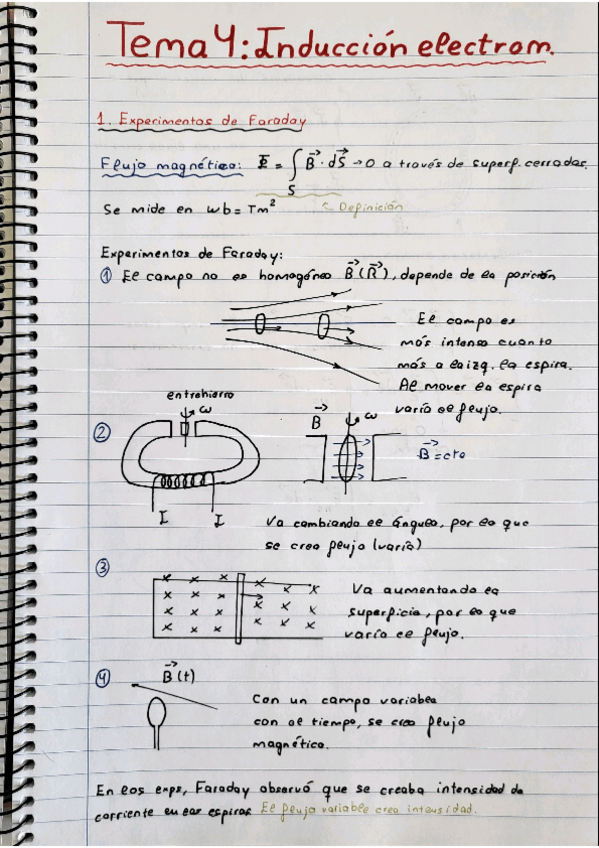 Tema 4: Inducción electrom.
1. Experimentos de Faraday
Flujo magnético: Φ = ∫ B⃗ · dS⃗ → 0 a través de superf. cerradas.
S
Se mide en wb = Tm²
↖ Definición
Experimentos de Faraday:
① El campo no es homogéneo B⃗(R⃗), depende de la posición
El campo es
más intenso cuanto
más a la izq. la espira.
Al mover la espira
varía el flujo.
entrehierro
ω
②
I
I
B⃗
ω
B⃗ = cte
Va cambiando el ángulo, por lo que
se crea flujo (varía)
③
Va aumentando la
superficie, por lo que
varía el flujo.
④
B⃗(t)
Con un campo variable
con el tiempo, se crea flujo
magnético.
En los exps, Faraday observó que se creaba intensidad de
corriente en las espiras. El flujo variable crea intensidad.